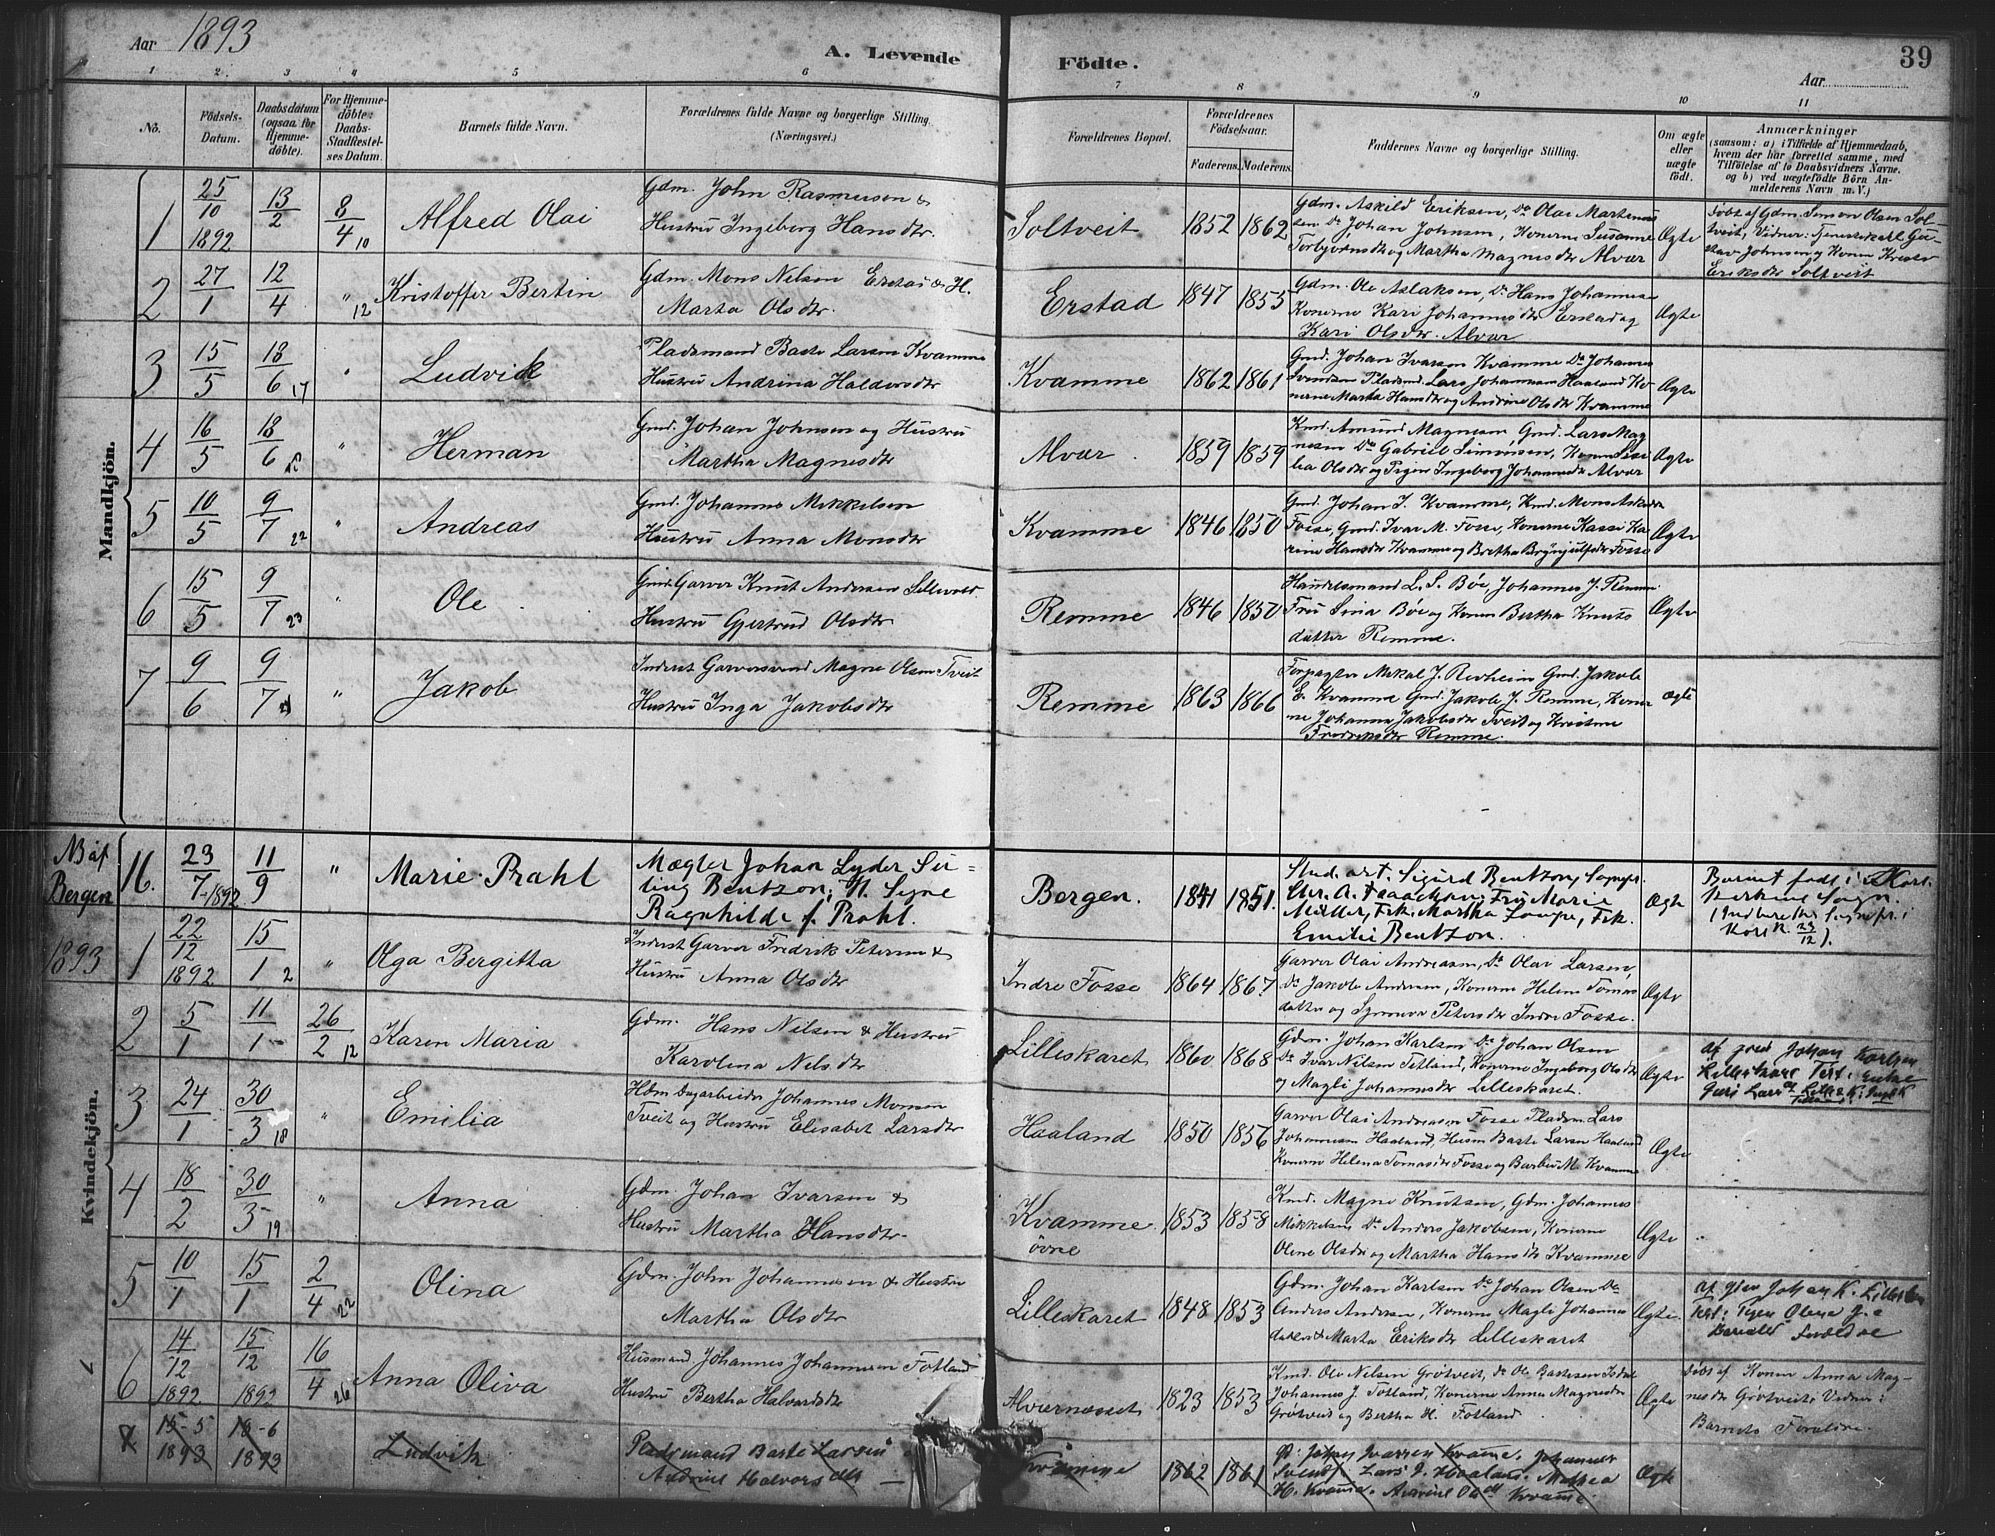 Aar 1893
A. Levende
Födte.
39
Aar
1 2 3 4 5 6
7 8 9 10 11
No.
Födsels-
Datum.
Daabsdatum
(ogsaa for
Hjemme-
döbte).
For Hjemme-
döbte:
Daabs-
Stadfæstel-
ses Datum.
Barnets fulde Navn.
Forældrenes fulde Navne og borgerlige Stilling
(Næringsvei.)
Forældrenes Bopæl.
Forældrenes
Födselsaar.
Faderens. Moderens.
Faddernes Navne og borgerlige Stilling.
Om ægte
eller
uægte
födt.
Anmærkninger
(saasom: a) i Tilfælde af Hjemmedaab,
hvem der har forrettet samme, med
Tilföielse af to Daabsvidners Navne.
og b) ved uægtefödte Börn An-
melderens Navn m. V.)
Mandkjön.
1
25/10 1892
13/2
8/4 10
Alfred Olai
Gdm. John Rasmussen &
Hustru Ingeborg Hansdtr.
Soltveit
1852 1862
Gdm. Askild Eriksen, Do Olai Martinus
sen Do Johan Johnsen, Konerne Susanne
Torbjörnsdtr og Martha Magnesdtr Alvær
Ægte
Döbt af Gdm. Simon Olsen Sol-
tveit, Vidner: Tjenestekarl Gu-
stav Johnsen og Konen
Eriksdtr Soltveit
2
27/1
12/4
" 12
Kristoffer Bertin
Gdm. Mons Nilsen Erstad & H.
Marta Olsdtr.
Erstad
1847 1855
Gdm. Ole Aslaksen, Do Hans Johannes-
Konerne Kari Johannesdtr Erstad og
Kari Olsdtr. Alvær
Ægte
3
15/5
18/6 17
"
Ludvik
Pladsmand Baste Larsen Kvamme
Hustru Andrina Haldorsdtr
Kvamme
1862 1861
Gmd. Johan Ivarsen Kvamme Do Johannes
Svendsen Pladsmd. Lars Johannesen Haaland Ko-
nerne Marta Hansdtr og Andrine Olsdtr Kvamme
Ægte
4
16/5
18/6
"
Herman
Gmd. Johan Johnsen og Hustru
Martha Magnesdtr
Alvær
1859 1859
Kmd. Amund Magnesen Gmd. Lars Mag-
nesen Do Gabriel Simonsen, Konen
Olsdtr og Pigen Ingeborg Johannesdtr Alvær
Ægte
5
10/5
9/7 22
"
Andreas
Gmd. Johannes Mikkelsen
Hustru Anna Monsdtr
Kvamme
1846 1850
Gmd. Johan I. Kvamme, Kmd. Mons Askildsen
Fosse, Gmd. Ivar M. Fosse, Konerne Kassi Ka-
rine Hansdtr Kvamme og Bretha Brynjulfsdtr Fosse
Ægte
6
15/5
9/7 23
"
Ole
Gmd. Garver Knut Andersen
Hustru Gjertrud Olsdtr
Remme
1846 1850
Handelsmand L. S. Böe, Johannes J. Remme
Fru Sina Böe og Konen Bertha Knuts
datter Remme.
Ægte
7
9/6
9/7
"
Jakob
Inderst Garversvend Magne Olsen Tveit
Hustru Inga Jakobsdtr
Remme
1863 1866
Forpagter Mikal J. Revheim Gmd. Jakob
E. Kvamme Gmd. Jakob J. Remme, Koner
ne Johanna Jakobsdtr Tveit og Kristine
Fredriksdtr Remme.
Ægte
NB af
Bergen
16.
23/7 - 1892
11/9
"
Marie Prahl
Mægler Johan Lyder Su-
ling Bentzon; H. Signe
Ragnhilde f. Prahl.
Bergen.
1841 1851.
Stud. art. Sigurd Bentzon,
Chr. A. Isaachsen, Fru Marie
Müller, Frk. Martha, Frk.
Emilie Bentzon.
Ægte
Barnet född i Kors-
kirkens Sogn.
(Indberettet Sognepr. i
Kors K. 23/12).
Kvindekjön.
1893
1
22/12 1892
15/1 2
"
Olga Bergitta
Inderst Garver Fredrik Petersen &
Hustru Anna Olsdtr
Indre Fosse
1864 1867
Garver Olai Andreasen, Do Olai Larsen,
Do Jakob Andersen, Konerne Helene Tomas
datter og Synneva Petersdtr Indre Fosse.
Ægte
2
5/1
11/1
26/2 12
Karen Maria
Gdm. Hans Nilsen & Hustru
Karolina Nilsdtr
Lilleskaret
1860 1868
Gdm. Johan Karlsen Do Johan Olsen
Do Ivar Nilsen Tetland, Konerne Ingeborg Olsdtr
og Magli Johannesdtr Lilleskaret.
Ægte
af Johan Karlsen
Lilleskare Test. Enke
3
24/1
30/3 18
"
Emilia
Hdm Dagarbeider Johannes Monsen
Tveit og Hustru Elisabet Larsdtr
Haaland
1850 1856
Garver Olai Andreasen Fosse Pladsm. Lars
Johannesen Haaland, Husm Baste Larsen Haaland
Konerne Helena Tomasdtr Fosse og Barbru M. Kvamme
Ægte
4
18/2
30/3 19
"
Anna
Gdm. Johan Ivarsen &
Hustru Martha Hansdtr
Kvamme
övre
1853 1858
Kmd. Magne Knutsen, Gdm. Johannes
Mikkelsen, Do Anders Jakobsen, Konerne
Olene Olsdtr og Martha Hansdtr Kvamme
Ægte
5
10/1
15/1
2/4 22
Olina
Gdm. John Johannesen & Hustru
Martha Olsdtr
Lilleskaret
1848 1853
Gdm. Johan Karlsen Do Johan Olsen Do
Anders Andersen, Konerne Magli Johannes
datter & Marta Eriksdtr Lilleskaret
Ægte
af Johan K. Lilleskar
Test: Pigen Olene
6
14/12 1892
15/12 1892
16/4 26
Anna Oliva
Husmand Johannes Johannesen Fotland
Hustru Bertha Halvardsdtr
Alvernæsset
1823 1853
Kmd. Ole Nilsen Grötveit, Do Ole Bastesen Isdal
Johannes J. Fotland, Konerne Anna Magnesdtr
Grötveit og Bertha H. Fotland
Ægte
Döbt af Konen Anna Mag-
nesdtr Grötveit; Vidner:
Barnets Foreldre.
7
15-5 1893
18-6 1893
Ludvik
Pladsmand Baste Larsen
Andrine Halvorsdtr
Kvamme
1862 1861
Johan Ivarsen Kvamme. Johannes
Svends. Lars J. Haaland. Marta
H. Kvamme. Andrine Olsdtr Kvamme
Ægte